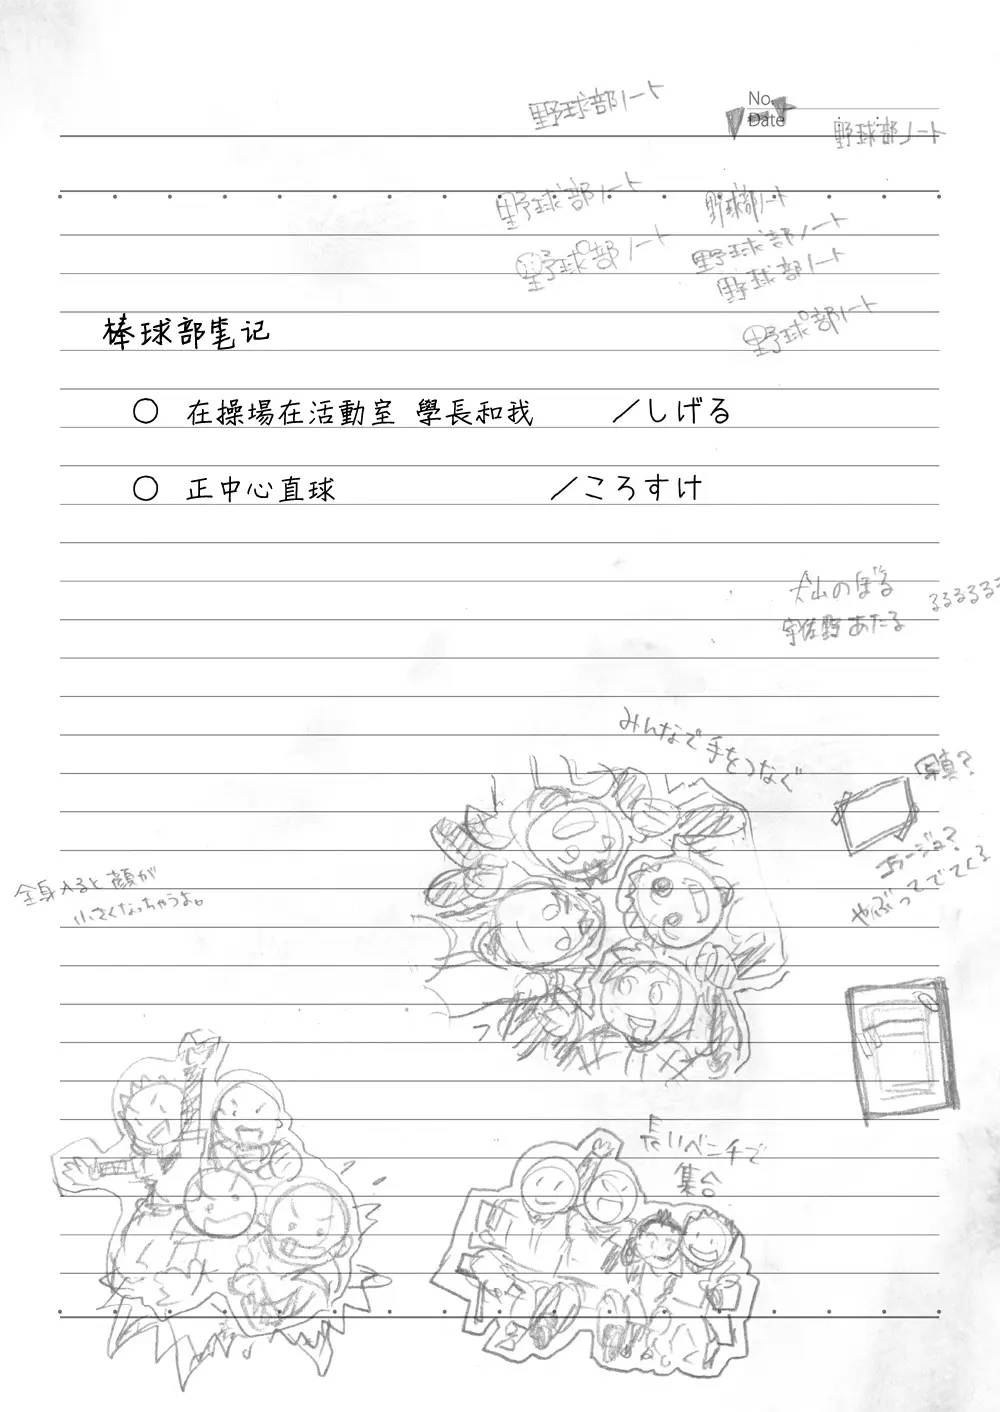 野球部ノート
No.
Date
野球部ノート
野球部ノート
野球部ノート
野球部ノート
野球部ノート
野球部ノート
野球部ノート
棒球部笔记
○ 在操場在活動室 學長和我 ／しげる
○ 正中心直球 ／ころすけ
犬山のぼる
るるるるる
宇佐野あたる
みんなで手をつなぐ
写真?
やぶってでてくる
全身入ると顔が
小さくなっちゃうよ。
長いベンチで
集合